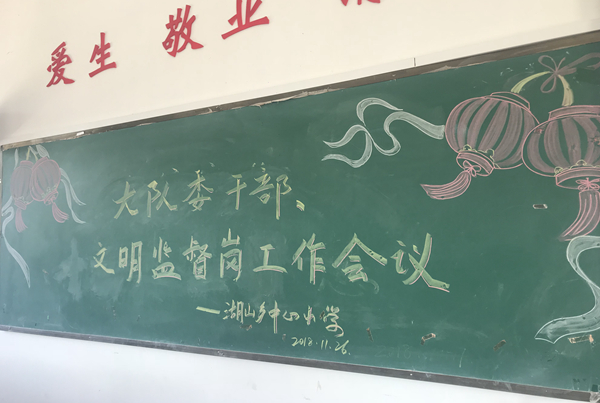 爱生 敬业
大队委干部、
文明监督岗工作会议
—湖山乡中心小学
2018.11.26.